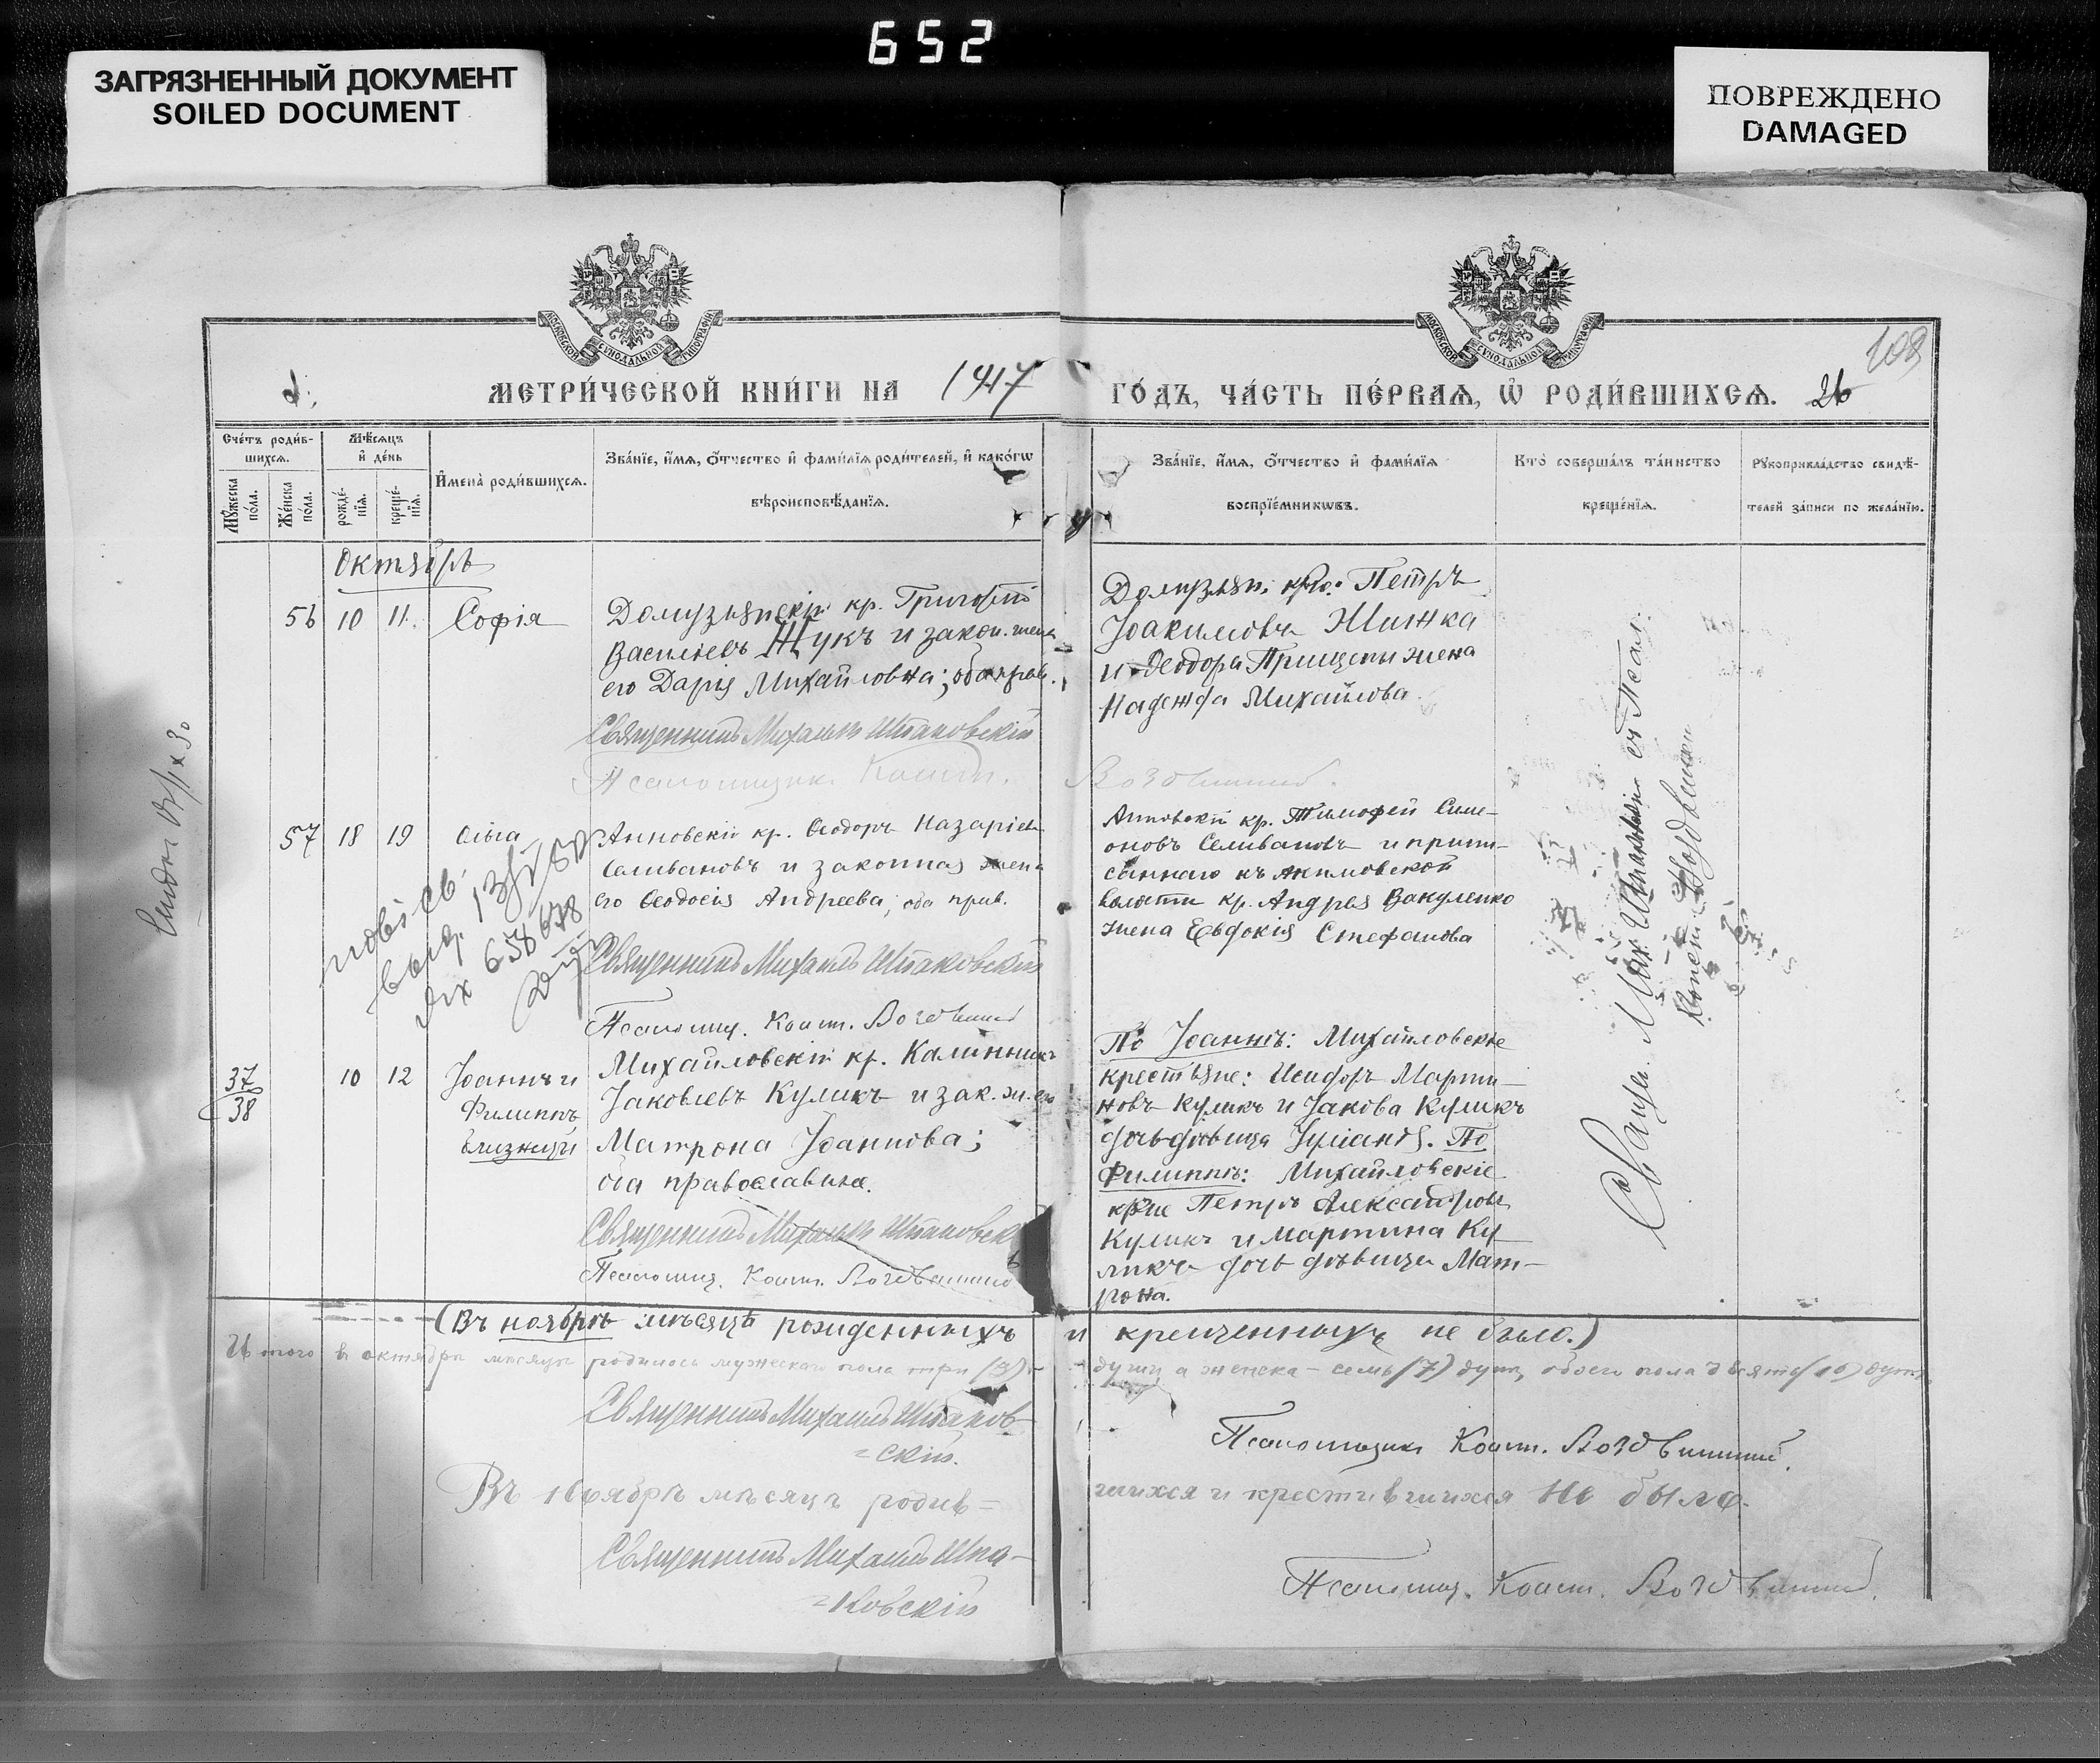 652
ЗАГРЯЗНЕННЫЙ ДОКУМЕНТ
SOILED DOCUMENT
ПОВРЕЖДЕНО
DAMAGED
МОСКОВСКОЙ СѴНОДАЛЬНОЙ ТИПОГРАФІИ
МОСКОВСКОЙ СѴНОДАЛЬНОЙ ТИПОГРАФІИ
109
МЕТРИ́ЧЕСКОЙ КНИ́ГИ НА 1917
ГО́ДЪ, ЧА́СТЬ ПЕ́РВАѦ, Ѡ҆ РОДИ́ВШИХСѦ. 26
Сче́тъ роди́в-
шихсѧ.
Мѣ́сѧцъ
и҆ де́нь
Мꙋ́жеска
по́ла.
Же́нска
по́ла.
рожде́-
нїѧ.
креще́-
нїѧ.
И҆мена̀ роди́вшихсѧ.
Зва́нїе, и҆́мѧ, ѻ҆́тчество и҆ фами́лїѧ роди́телей, и҆ како́гѡ
вѣроисповѣ́данїѧ.
Зва́нїе, и҆́мѧ, ѻ҆́тчество и҆ фами́лїѧ
воспрїе́мникѡвъ.
Кто̀ соверша́лъ та́инство
креще́нїѧ.
Рꙋкоприкла́дство свидѣ́-
телей за́писи по жела́нїю.
Октябрь
56 10 11. Софія
Домузлянскій кр. Григорій
Василіевъ Жукъ и закон. жена
его Дарія Михайловна; оба прав.
Священникъ Михаилъ Шпаковскій
Псаломщик Конст.
Домузлян. кр. Петръ
Іоакимовъ Жижка
и Ѳеодора Прищепы жена
Надежда Михайлова.
57 18 19 Ольга
Анновскій кр. Ѳеодоръ Назаріевъ
Селивановъ и законная жена
его Ѳеодосія Андреева; оба прав.
Священникъ Михаилъ Шпаковскій
Псаломщ. Конст. Воздвишкій
Анновскій кр. Тимофей Симе-
оновъ Селивановъ и припи-
саннаго къ Акимовской
волости кр. Андрея Вакуленко
жена Евдокія Стефанова
658678
37
38
10 12 Іоаннъ и
Филиппъ
близнецы
Михайловскій кр. Калинникъ
Іаковлевъ Куликъ и зак. ж. его
Матрона Іоаннова;
оба православные.
Священникъ Михаилъ Шпаковск
Псаломщ. Конст.
По Іоаннѣ: Михайловскіе
крестьяне: Исидоръ Марти-
новъ Куликъ и Іакова Куликъ
дочь-дѣвица Іуліанія. По
Филиппѣ: Михайловскіе
кр-не Петръ Александровъ
Куликъ и Мартина Ку-
ликъ дочь дѣвица Мат-
рона.
(Въ ноябрѣ мѣсяцѣ рожденныхъ
и крещенныхъ не было.)
Итого въ октябрѣ мѣсяцѣ родилось мужескаго пола три (3)
души а женска - семь (7) душъ, обоего пола десять (10) душъ
Священникъ Михаилъ Шпаков-
скій.
Псаломщик Конст.
Въ Ноябрѣ мѣсяцѣ родив-
шихся и крестившихся не было.
Священникъ Михаилъ Шпа-
ковскій
Псаломщ. Конст.